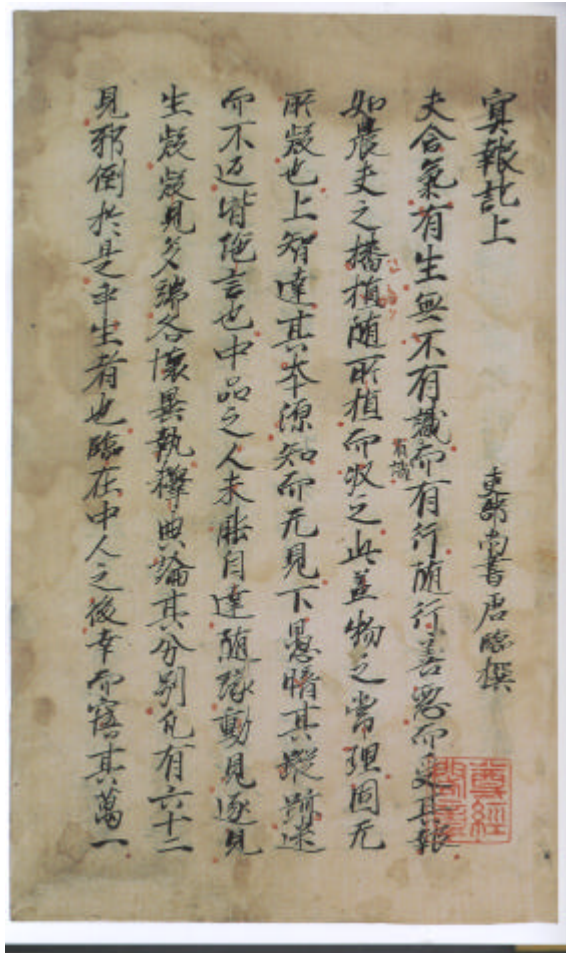 冥報記上
吏部尚書唐臨撰
夫含氣有生無不有識而有行随行善惡而受其報
有識
如農夫之播植随所植而収之此盖物之常理固无
所疑也上智達其本源知而无見下愚暗其蹤跡迷
而不返皆绝言也中品之人未能自達随縁動見逐見
生疑疑見多端各懐異執釋典論其分别凡有六十二
見邪倒於是乎生者也臨在中人之後幸而寤其萬一